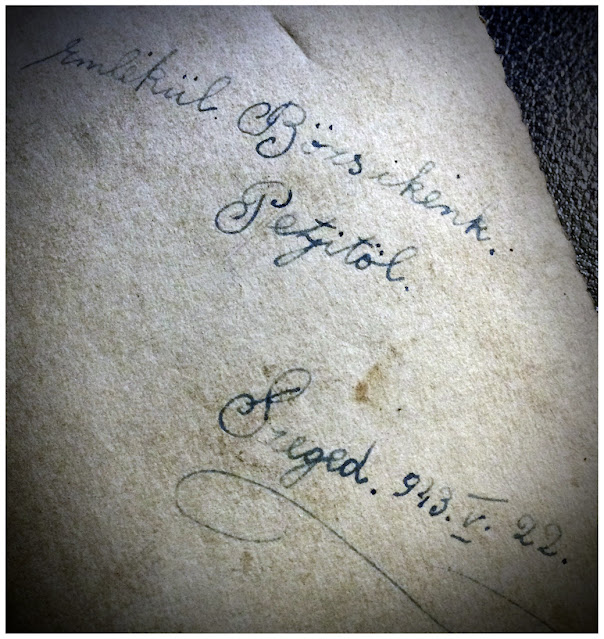 Emlékül. Börsikénk.
Petjitöl.
Szeged. 943. V. 22.